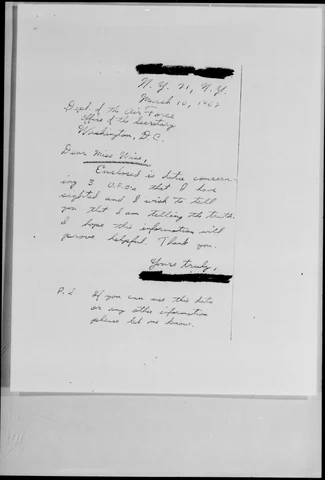 N. Y. 21, N.Y.
March 10, 1962
Dept. of the Air Force
Office of the Secretary
Washington, D.C.
Dear Miss Wise,
Enclosed is data concern-
ing 3 U.F.O.s that I have
sighted and I wish to tell
you that I am telling the truth.
I hope this information will
prove helpful. Thank you.
Yours truly,
P.S. If you can use this data
or any other information
please let me know.